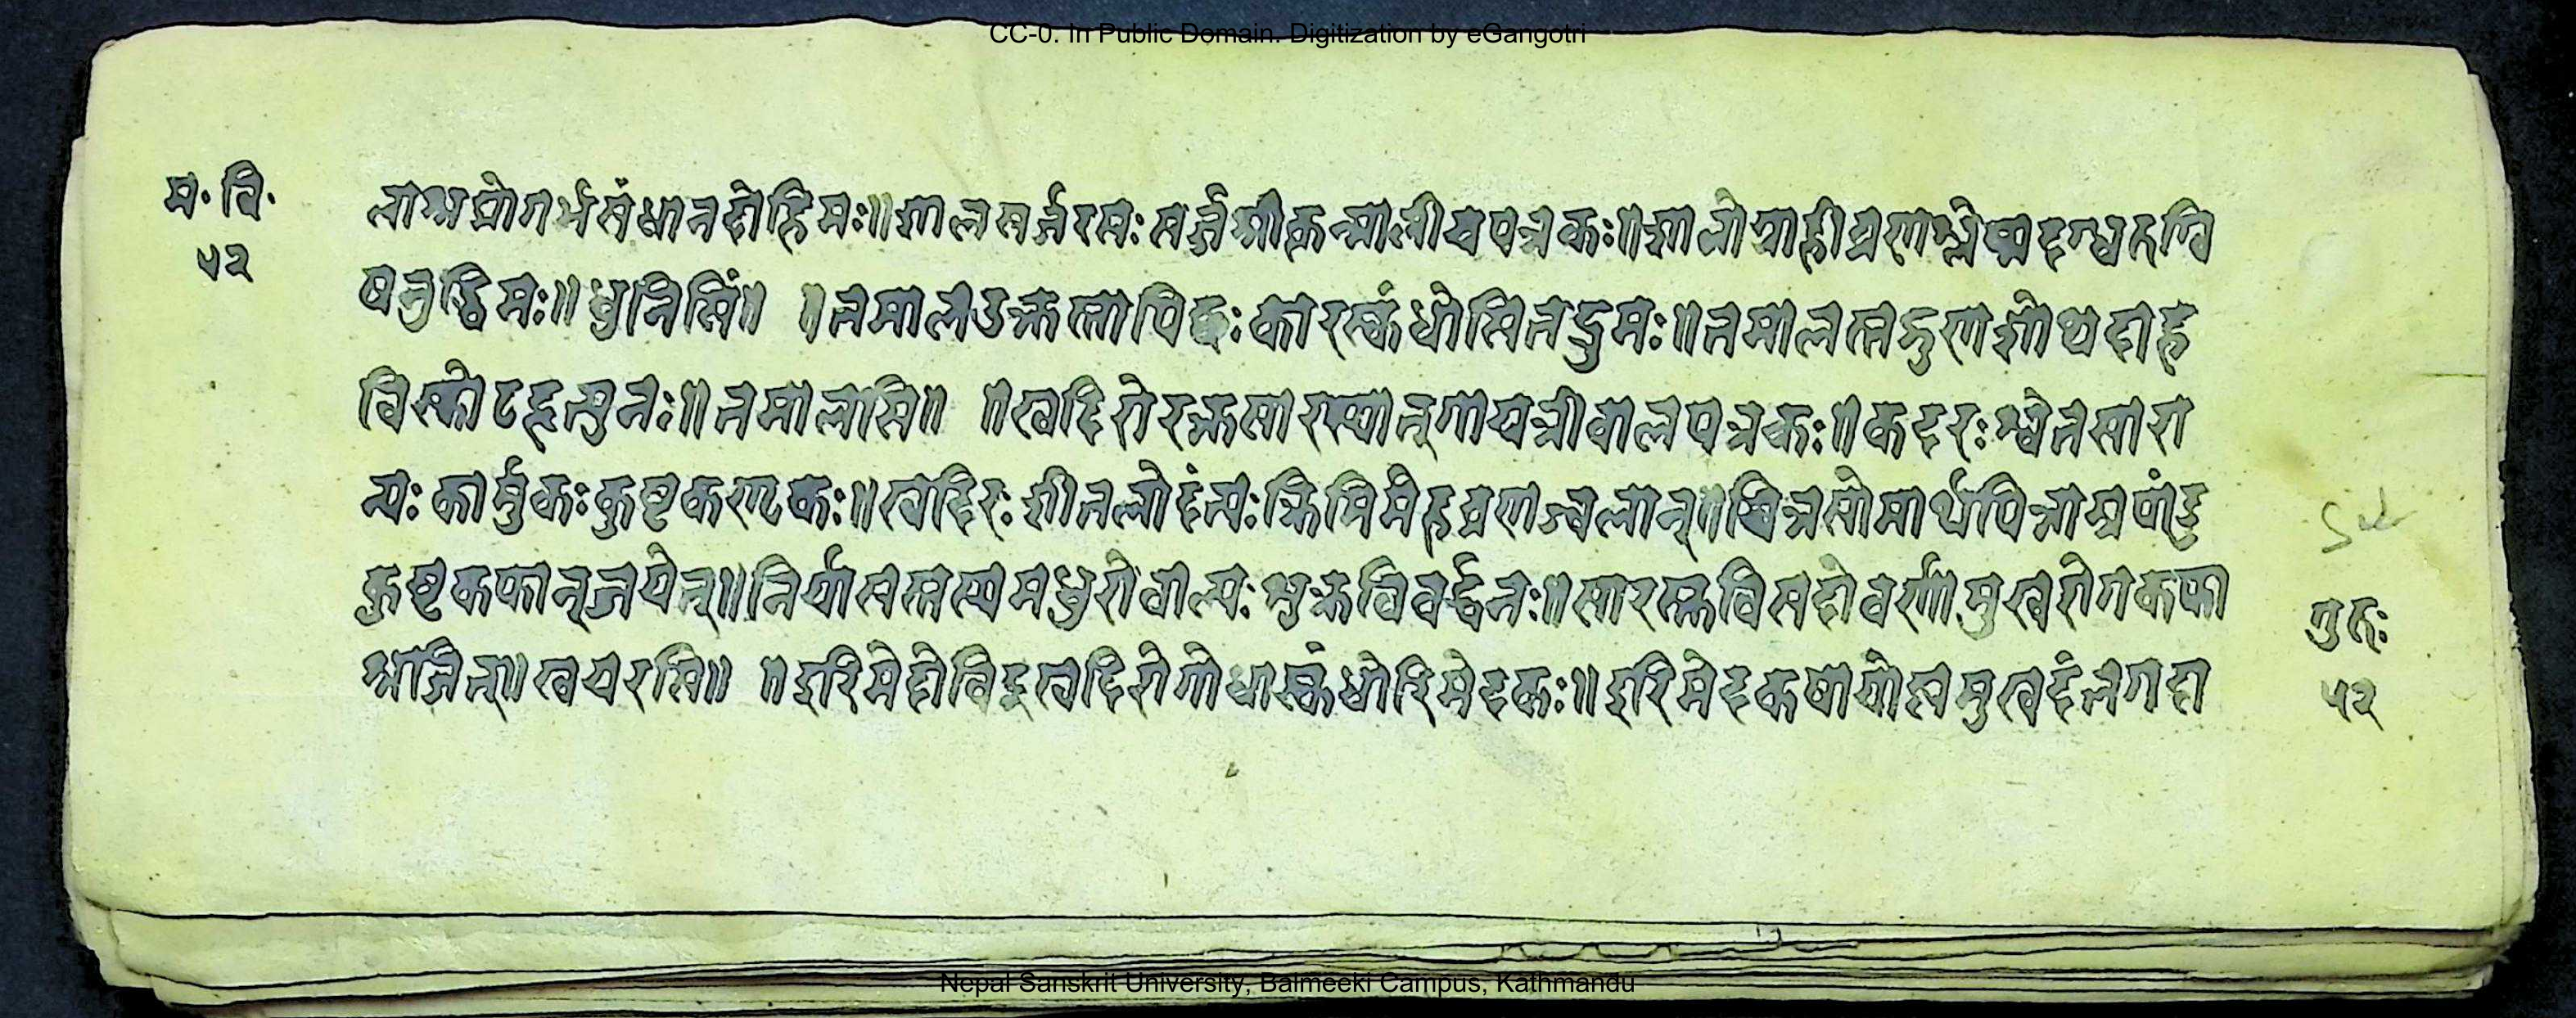 CC-0. In Public Domain. Digitization by eGangotri
म· वि·
५२
लाश्मप्रोगर्भसंधानदोहिमः॥शालसर्जरसः सर्ज्जश्रीकृन्मारीचपत्रकः॥शालोग्राही व्रणश्लेष्मदग्धरुग्वि
षनुद्धिमः॥धुनिसिं॥ ॥तमालउक्तस्तापिछः कारस्कंधोसितद्रुमः॥तमालस्तद्गुणशोथदाह
विस्फोटहृत्पुनः॥तमालसि॥ ॥खदिरोरक्तसारख्यात्गायत्रीबालपत्रकः॥कदरः श्वेतसारो
न्यः कार्मुकः कुष्टकण्टकः॥खदिरः शीतलोदंत्यः क्रिमिमेहव्रणज्वलान्॥श्वित्रसोमार्थपित्राश्रपांडु
कुष्टकफान्जयेत्॥निर्यासस्तस्यमधुरोबाल्यः शुक्रविवर्द्धनः॥सारस्तुविसदोवर्णोमुखरोगकफा
श्रजित्॥खयरसि॥ ॥इरिमेदोविदुखदिरोगोधास्कंधोरिमेदकः॥इरिमेदकषायोष्णमुखदंतगदा
गुरुः
५२
Nepal Sanskrit University, Balmeeki Campus, Kathmandu